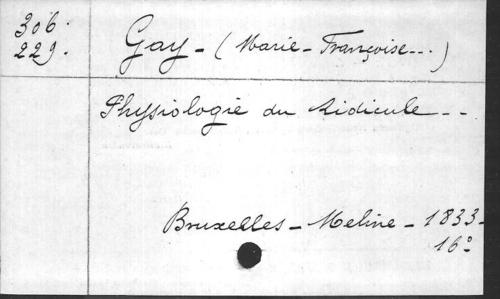 306.
229.
Gay - (Marie - Françoise...)
Physiologie du Ridicule - -
Bruxelles - Meline - 1833 -
16°